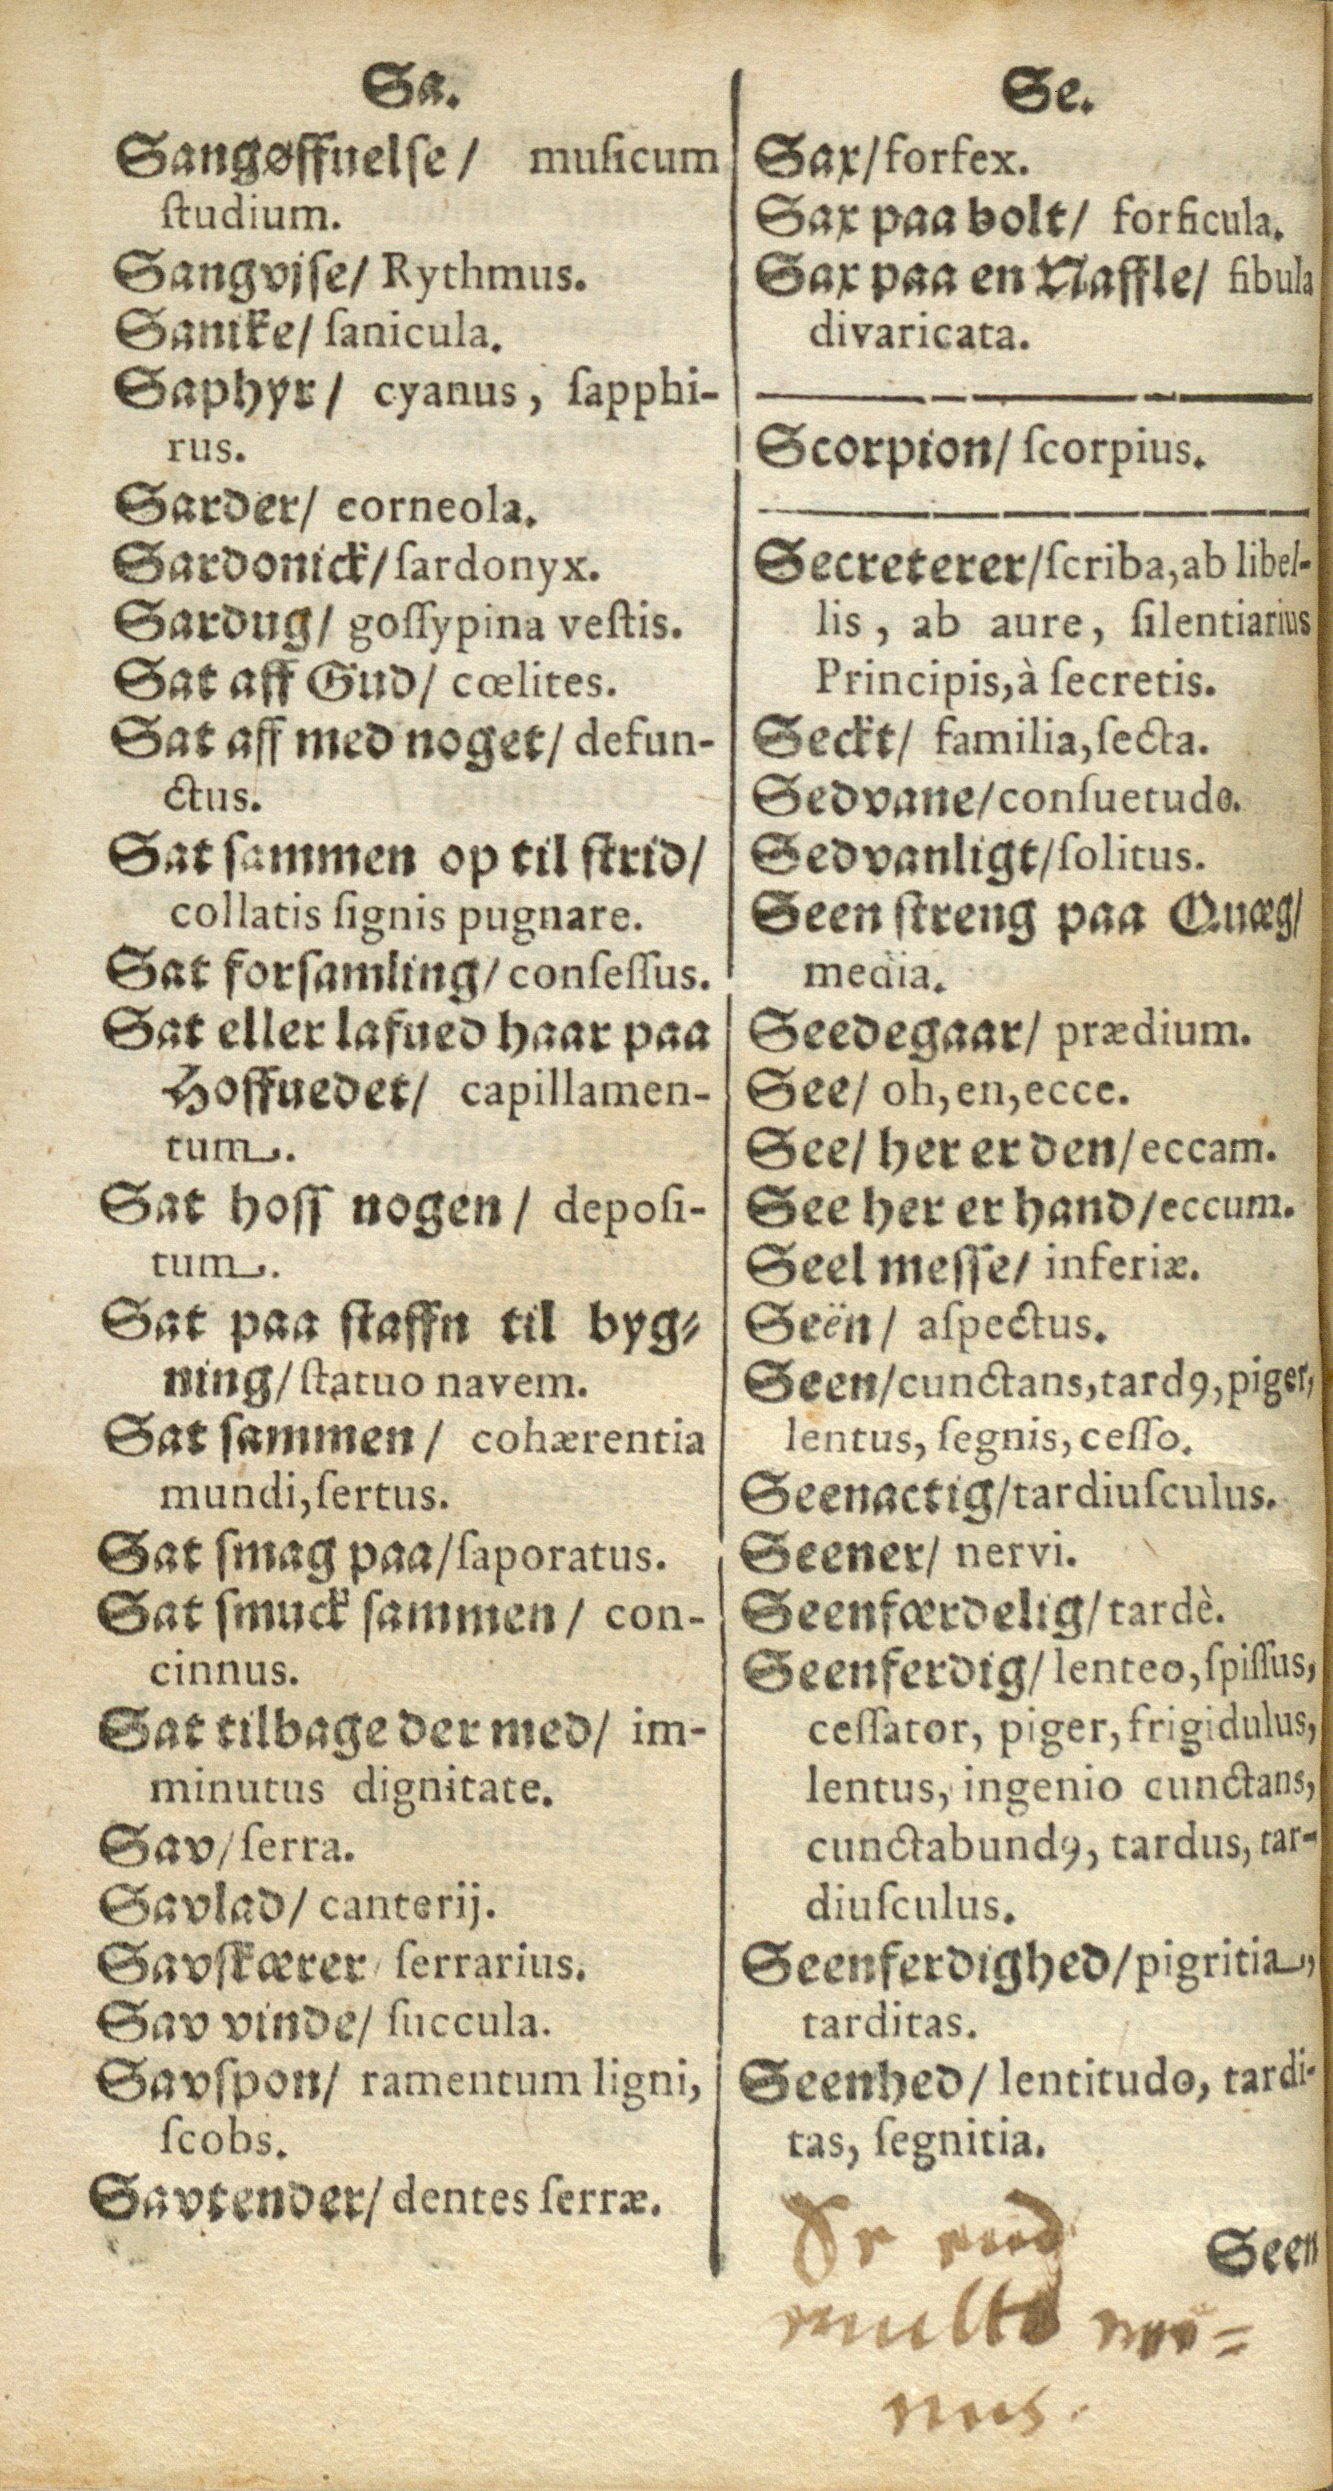 Sa.
Sangøffuelſe/ muſicum
ſtudium.
Sangviſe/ Rythmus.
Sanike/ ſanicula.
Saphyr/ cyanus, ſapphi-
rus.
Sarder/ corneola.
Sardonick/ ſardonyx.
Sardug/ goſſypina veſtis.
Sat aff Gud/ cœlites.
Sat aff med noget/ defun-
ctus.
Sat ſammen op til ſtrid/
collatis ſignis pugnare.
Sat forſamling/ conſeſſus.
Sat eller lafued haar paa
Hoffuedet/ capillamen-
tum.
Sat hoſſ nogen/ depoſi-
tum.
Sat paa ſtaffn til byg-
ning/ ſtatuo navem.
Sat ſammen/ cohærentia
mundi, ſertus.
Sat ſmag paa/ ſaporatus.
Sat ſmuck ſammen/ con-
cinnus.
Sat tilbage der med/ im-
minutus dignitate.
Sav/ ſerra.
Savlad/ canterij.
Savſkærer/ ſerrarius.
Sav vinde/ ſuccula.
Savſpon/ ramentum ligni,
ſcobs.
Savtender/ dentes ſerræ.
Se.
Sax/ forfex.
Sax paa bolt/ forficula.
Sax paa en Naffle/ fibula
divaricata.
Scorpion/ ſcorpius.
Secreterer/ ſcriba, ab libel-
lis, ab aure, ſilentiarius
Principis, à ſecretis.
Seckt/ familia, ſecta.
Sedvane/ conſuetudo.
Sedvanligt/ ſolitus.
Seen ſtreng paa Quæg/
media.
Seedegaar/ prædium.
See/ oh, en, ecce.
See/ her er den/ eccam.
See her er hand/ eccum.
Seel meſſe/ inferiæ.
Seën/ aſpectus.
Seen/ cunctans, tardꝰ, piger,
lentus, ſegnis, ceſſo.
Seenactig/ tardiuſculus.
Seener/ nervi.
Seenfærdelig/ tardè.
Seenferdig/ lenteo, ſpiſſus,
ceſſator, piger, frigidulus,
lentus, ingenio cunctans,
cunctabundꝰ, tardus, tar-
diuſculus.
Seenferdighed/ pigritia,
tarditas.
Seenhed/ lentitudo, tardi-
tas, ſegnitia.
Seen
multo
nus.